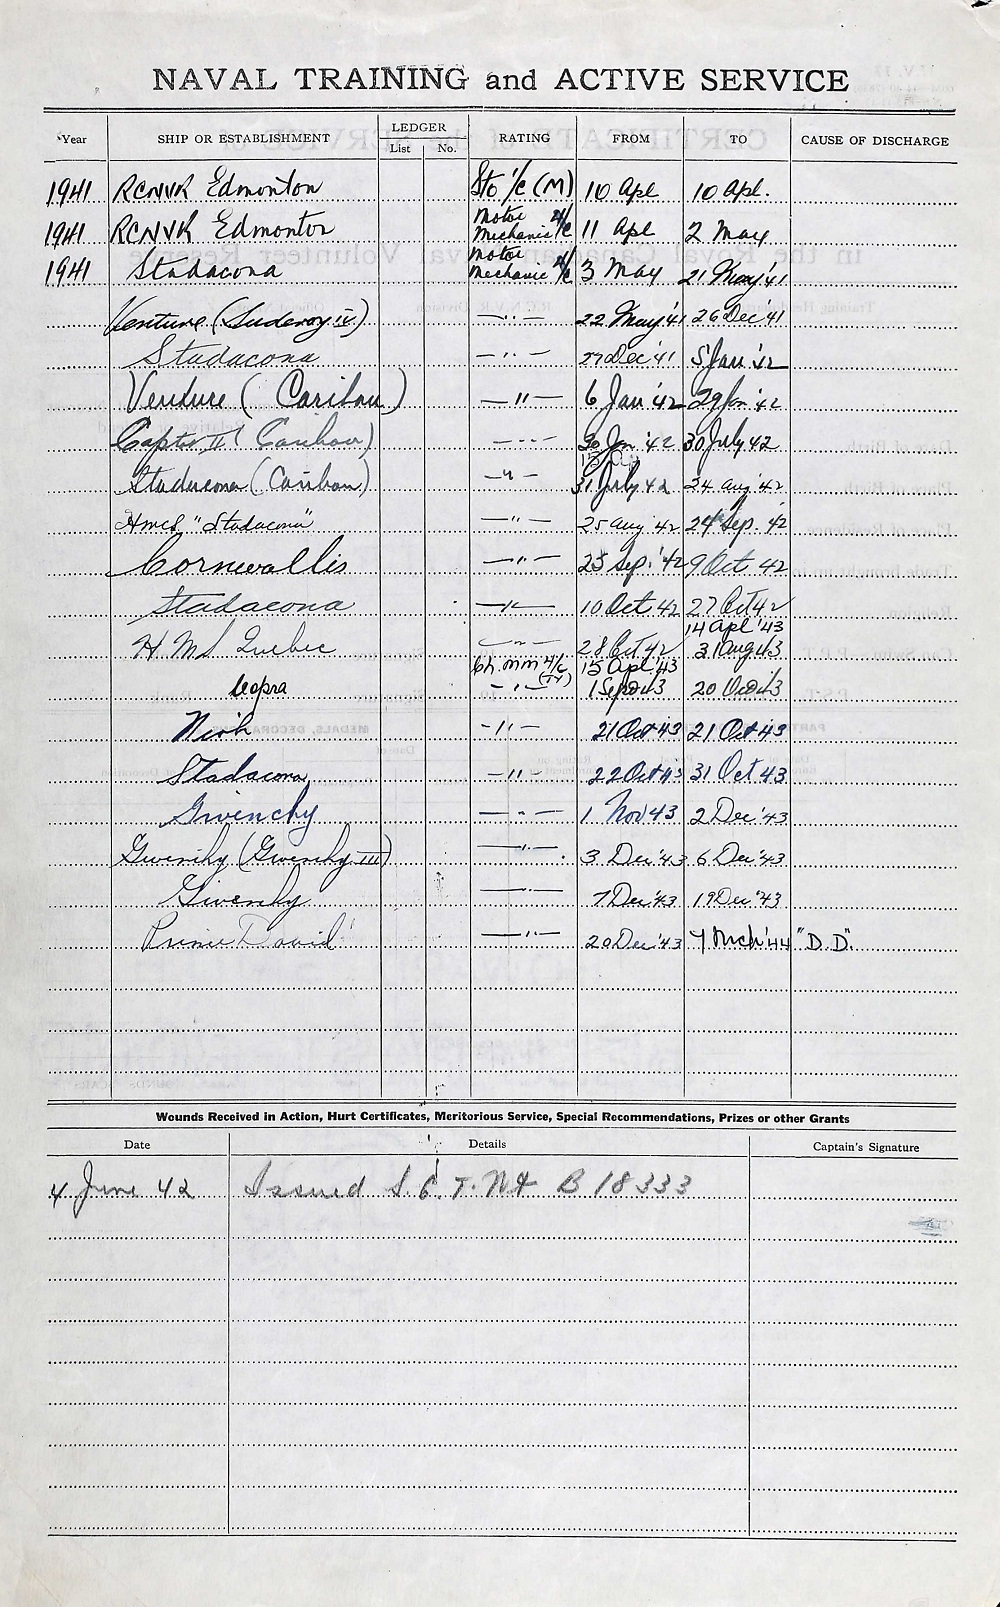 NAVAL TRAINING and ACTIVE SERVICE
Year SHIP OR ESTABLISHMENT LEDGER List No. RATING FROM TO CAUSE OF DISCHARGE
1941 RCNVR Edmonton Sto 1/c (M) 10 Apl 10 Apl.
1941 RCNVR Edmonton Motor Mechanic 4/c 11 Apl 2 May
1941 Stadacona Motor Mechanic 4/c 3 May 21 May '41
Venture (Suderoy IV) —"— 22 May '41 26 Dec '41
Stadacona —"— 27 Dec '41 5 Jan '42
Venture (Caribou) —"— 6 Jan '42 29 Jan '42
Captor II (Caribou) —"— 30 Jan '42 30 July 42
Stadacona (Caribou) —"— 31 July 42 24 Aug '42
HMCS "Stadacona" —"— 25 Aug '42 24 Sep. '42
Cornwallis —"— 25 Sep. '42 9 Oct 42
Stadacona —"— 10 Oct 42 27 Oct 42
14 Apl '43
H M S Quebec —"— 28 Oct 42 31 Aug 43
Ch. M M 4/c (Ty) 15 Apl '43
Copra —"— 1 Sep 43 20 Oct 43
Niobe —"— 21 Oct '43 21 Oct '43
Stadacona —"— 22 Oct 43 31 Oct 43
Givenchy —"— 1 Nov '43 2 Dec '43
Givenchy (Givenchy III) —"— 3 Dec '43 6 Dec '43
Givenchy —"— 7 Dec '43 19 Dec '43
Prince David —"— 20 Dec '43 7 Mch '44 "D.D".
Wounds Received in Action, Hurt Certificates, Meritorious Service, Special Recommendations, Prizes or other Grants
Date Details Captain's Signature
4 June 42 Issued S.C.T. No B 18333